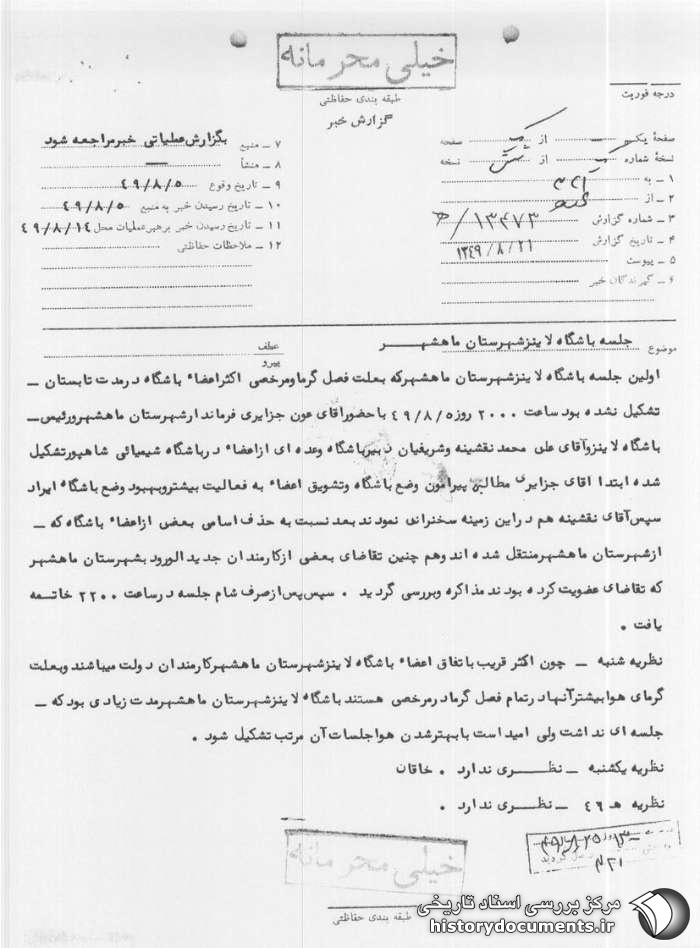 خیلی محرمانه
طبقه بندی حفاظتی
گزارش خبر
درجه فوریت
صفحهٔ یک از یک صفحه
نسخهٔ شماره از شش نسخه
۱ – به
۲ – از
۳ – شماره گزارش ۱۳۴۷۳/ﻫ
۴ – تاریخ گزارش ۱۳۴۹/۸/۲۱
۵ – پیوست
۶ – گیرندگان خبر
۷ – منبع بگزارش عملیاتی خبر مراجعه شود
۸ – منشأ —
۹ – تاریخ وقوع ۴۹/۸/۵
۱۰ – تاریخ رسیدن خبر به منبع ۴۹/۸/۵
۱۱ – تاریخ رسیدن خبر برهبر عملیات محل ۴۹/۸/۱۴
۱۲ – ملاحظات حفاظتی
موضوع جلسه باشگاه لاینز شهرستان ماهشهر
عطف
پیرو
اولین جلسه باشگاه لاینز شهرستان ماهشهر که بعلت فصل گرما و مرخصی اکثر اعضاء باشگاه در مدت تابستان –
تشکیل نشده بود ساعت ۲۰۰۰ روز ۴۹/۸/۵ با حضور آقای عون جزایری فرماندار شهرستان ماهشهر و رئیس –
باشگاه لاینز و آقای علی محمد نقشینه و شریفیان دبیر باشگاه وعده ای از اعضاء در باشگاه شیمیائی شاهپور تشکیل
شده ابتدا آقای جزایری مطالبی پیرامون وضع باشگاه وتشویق اعضاء به فعالیت بیشتر و بهبود وضع باشگاه ایراد
سپس آقای نقشینه هم در این زمینه سخنرانی نمودند بعد نسبت به حذف اسامی بعضی از اعضاء باشگاه که –
از شهرستان ماهشهر منتقل شده اند وهم چنین تقاضای بعضی از کارمندان جدید الورود بشهرستان ماهشهر
که تقاضای عضویت کرده بودند مذاکره وبررسی گردید . سپس پس از صرف شام جلسه در ساعت ۲۲۰۰ خاتمه
یافت .
نظریه شنبه – چون اکثر قریب باتفاق اعضاء باشگاه لاینز شهرستان ماهشهر کارمندان دولت میباشند وبعلت
گرمای هوا بیشتر آنها در تمام فصل گرما در مرخصی هستند باشگاه لاینز شهرستان ماهشهر مدت زیادی بود که –
جلسه ای نداشت ولی امید است با بهتر شدن هوا جلسات آن مرتب تشکیل شود .
نظریه یکشنبه – نظری ندارد . خاقان
نظریه ﻫ ۴۶ – نظری ندارد .
خیلی محرمانه
طبقه بندی حفاظتی
مرکز بررسی اسناد تاریخی
historydocuments.ir